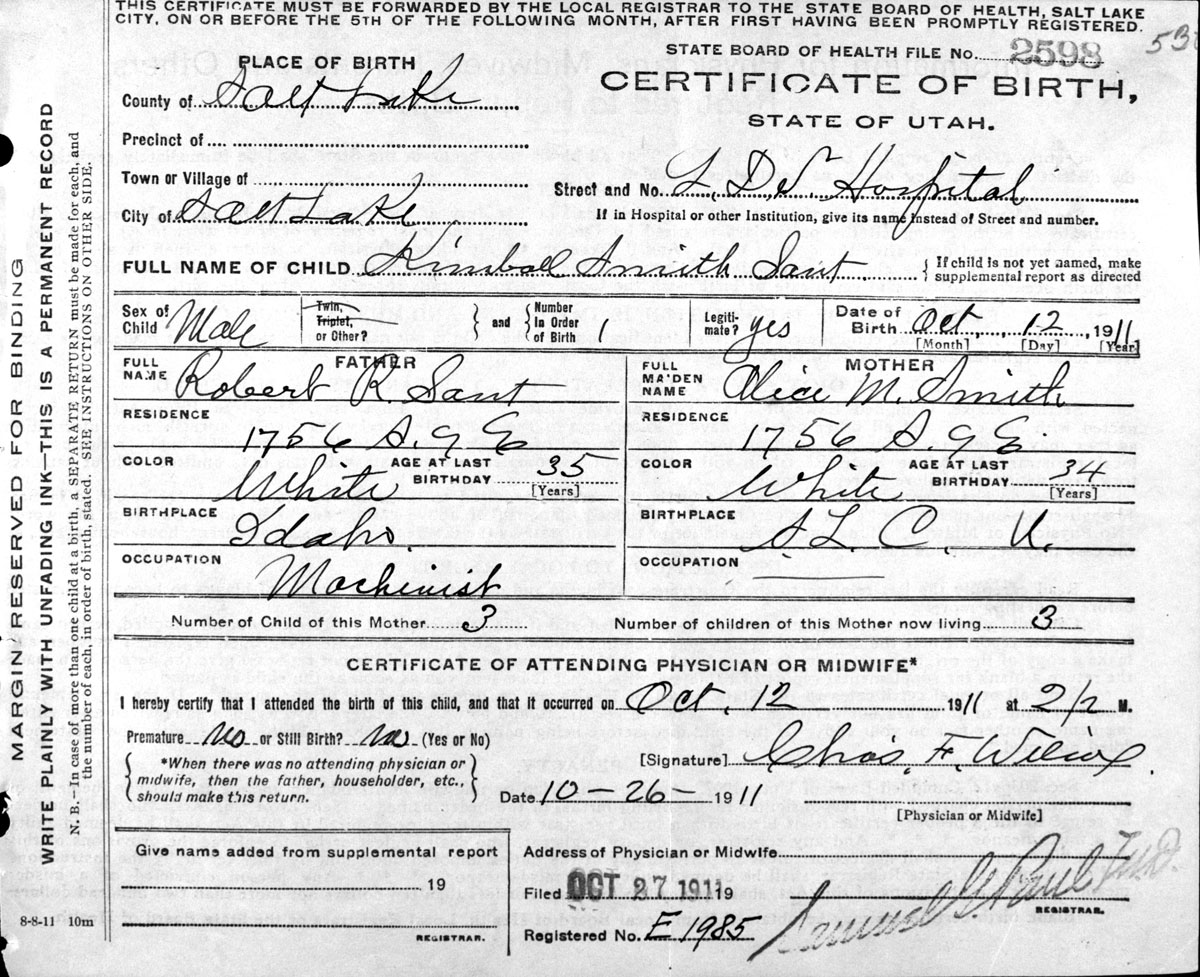 THIS CERTIFICATE MUST BE FORWARDED BY THE LOCAL REGISTRAR TO THE STATE BOARD OF HEALTH, SALT LAKE
CITY, ON OR BEFORE THE 5TH OF THE FOLLOWING MONTH, AFTER FIRST HAVING BEEN PROMPTLY REGISTERED.
STATE BOARD OF HEALTH FILE No. 2598
53
PLACE OF BIRTH
CERTIFICATE OF BIRTH,
STATE OF UTAH.
County of Salt Lake
Precinct of
Town or Village of
Street and No. L. D. S. Hospital
City of Salt Lake
If in Hospital or other Institution, give its name instead of Street and number.
FULL NAME OF CHILD Kimball Smith Sant
If child is not yet named, make
supplemental report as directed
Sex of Child Male
Twin, Triplet, or Other?
and Number In Order of Birth 1
Legiti-mate? yes
Date of Birth Oct. 12 1911
[Month] [Day] [Year]
FATHER
FULL NAME Robert R. Sant
MOTHER
FULL MAIDEN NAME Alice M. Smith
RESIDENCE
1756 S. 9 E
RESIDENCE
1756 S. 9 E
COLOR White
AGE AT LAST BIRTHDAY 35 [Years]
COLOR White
AGE AT LAST BIRTHDAY 34 [Years]
BIRTHPLACE
Idaho.
BIRTHPLACE
S. L. C. U.
OCCUPATION
Machinist
OCCUPATION
Number of Child of this Mother 3
Number of children of this Mother now living 3
CERTIFICATE OF ATTENDING PHYSICIAN OR MIDWIFE*
I hereby certify that I attended the birth of this child, and that it occurred on Oct. 12 1911 at 2 1/2 M.
Premature no or Still Birth? no (Yes or No)
*When there was no attending physician or
midwife, then the father, householder, etc.,
should make this return.
[Signature] Chas. F. Wilcox.
Date 10-26-1911
[Physician or Midwife]
Give name added from supplemental report
19
REGISTRAR.
8-8-11 10m
Address of Physician or Midwife
Filed OCT 27 1911 19
REGISTRAR.
Registered No. E 1985
MARGIN RESERVED FOR BINDING
WRITE PLAINLY WITH UNFADING INK—THIS IS A PERMANENT RECORD
N. B.—In case of more than one child at a birth, a SEPARATE RETURN must be made for each, and
the number of each, in order of birth, stated. SEE INSTRUCTIONS ON OTHER SIDE.